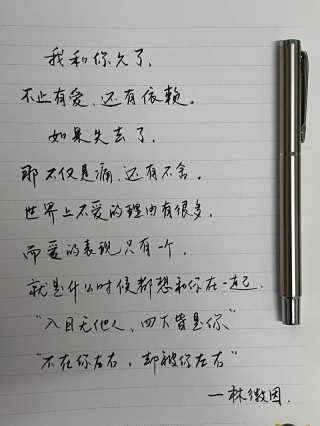 我和你久了,
不止有爱,还有依赖。
如果失去了,
那不仅是痛,还有不舍。
世界上不爱的理由有很多,
而爱的表现只有一个,
就是什么时候都想和你在一起.
"入目无他人,四下皆是你"
"不在你左右,却被你左右"
—林徽因.